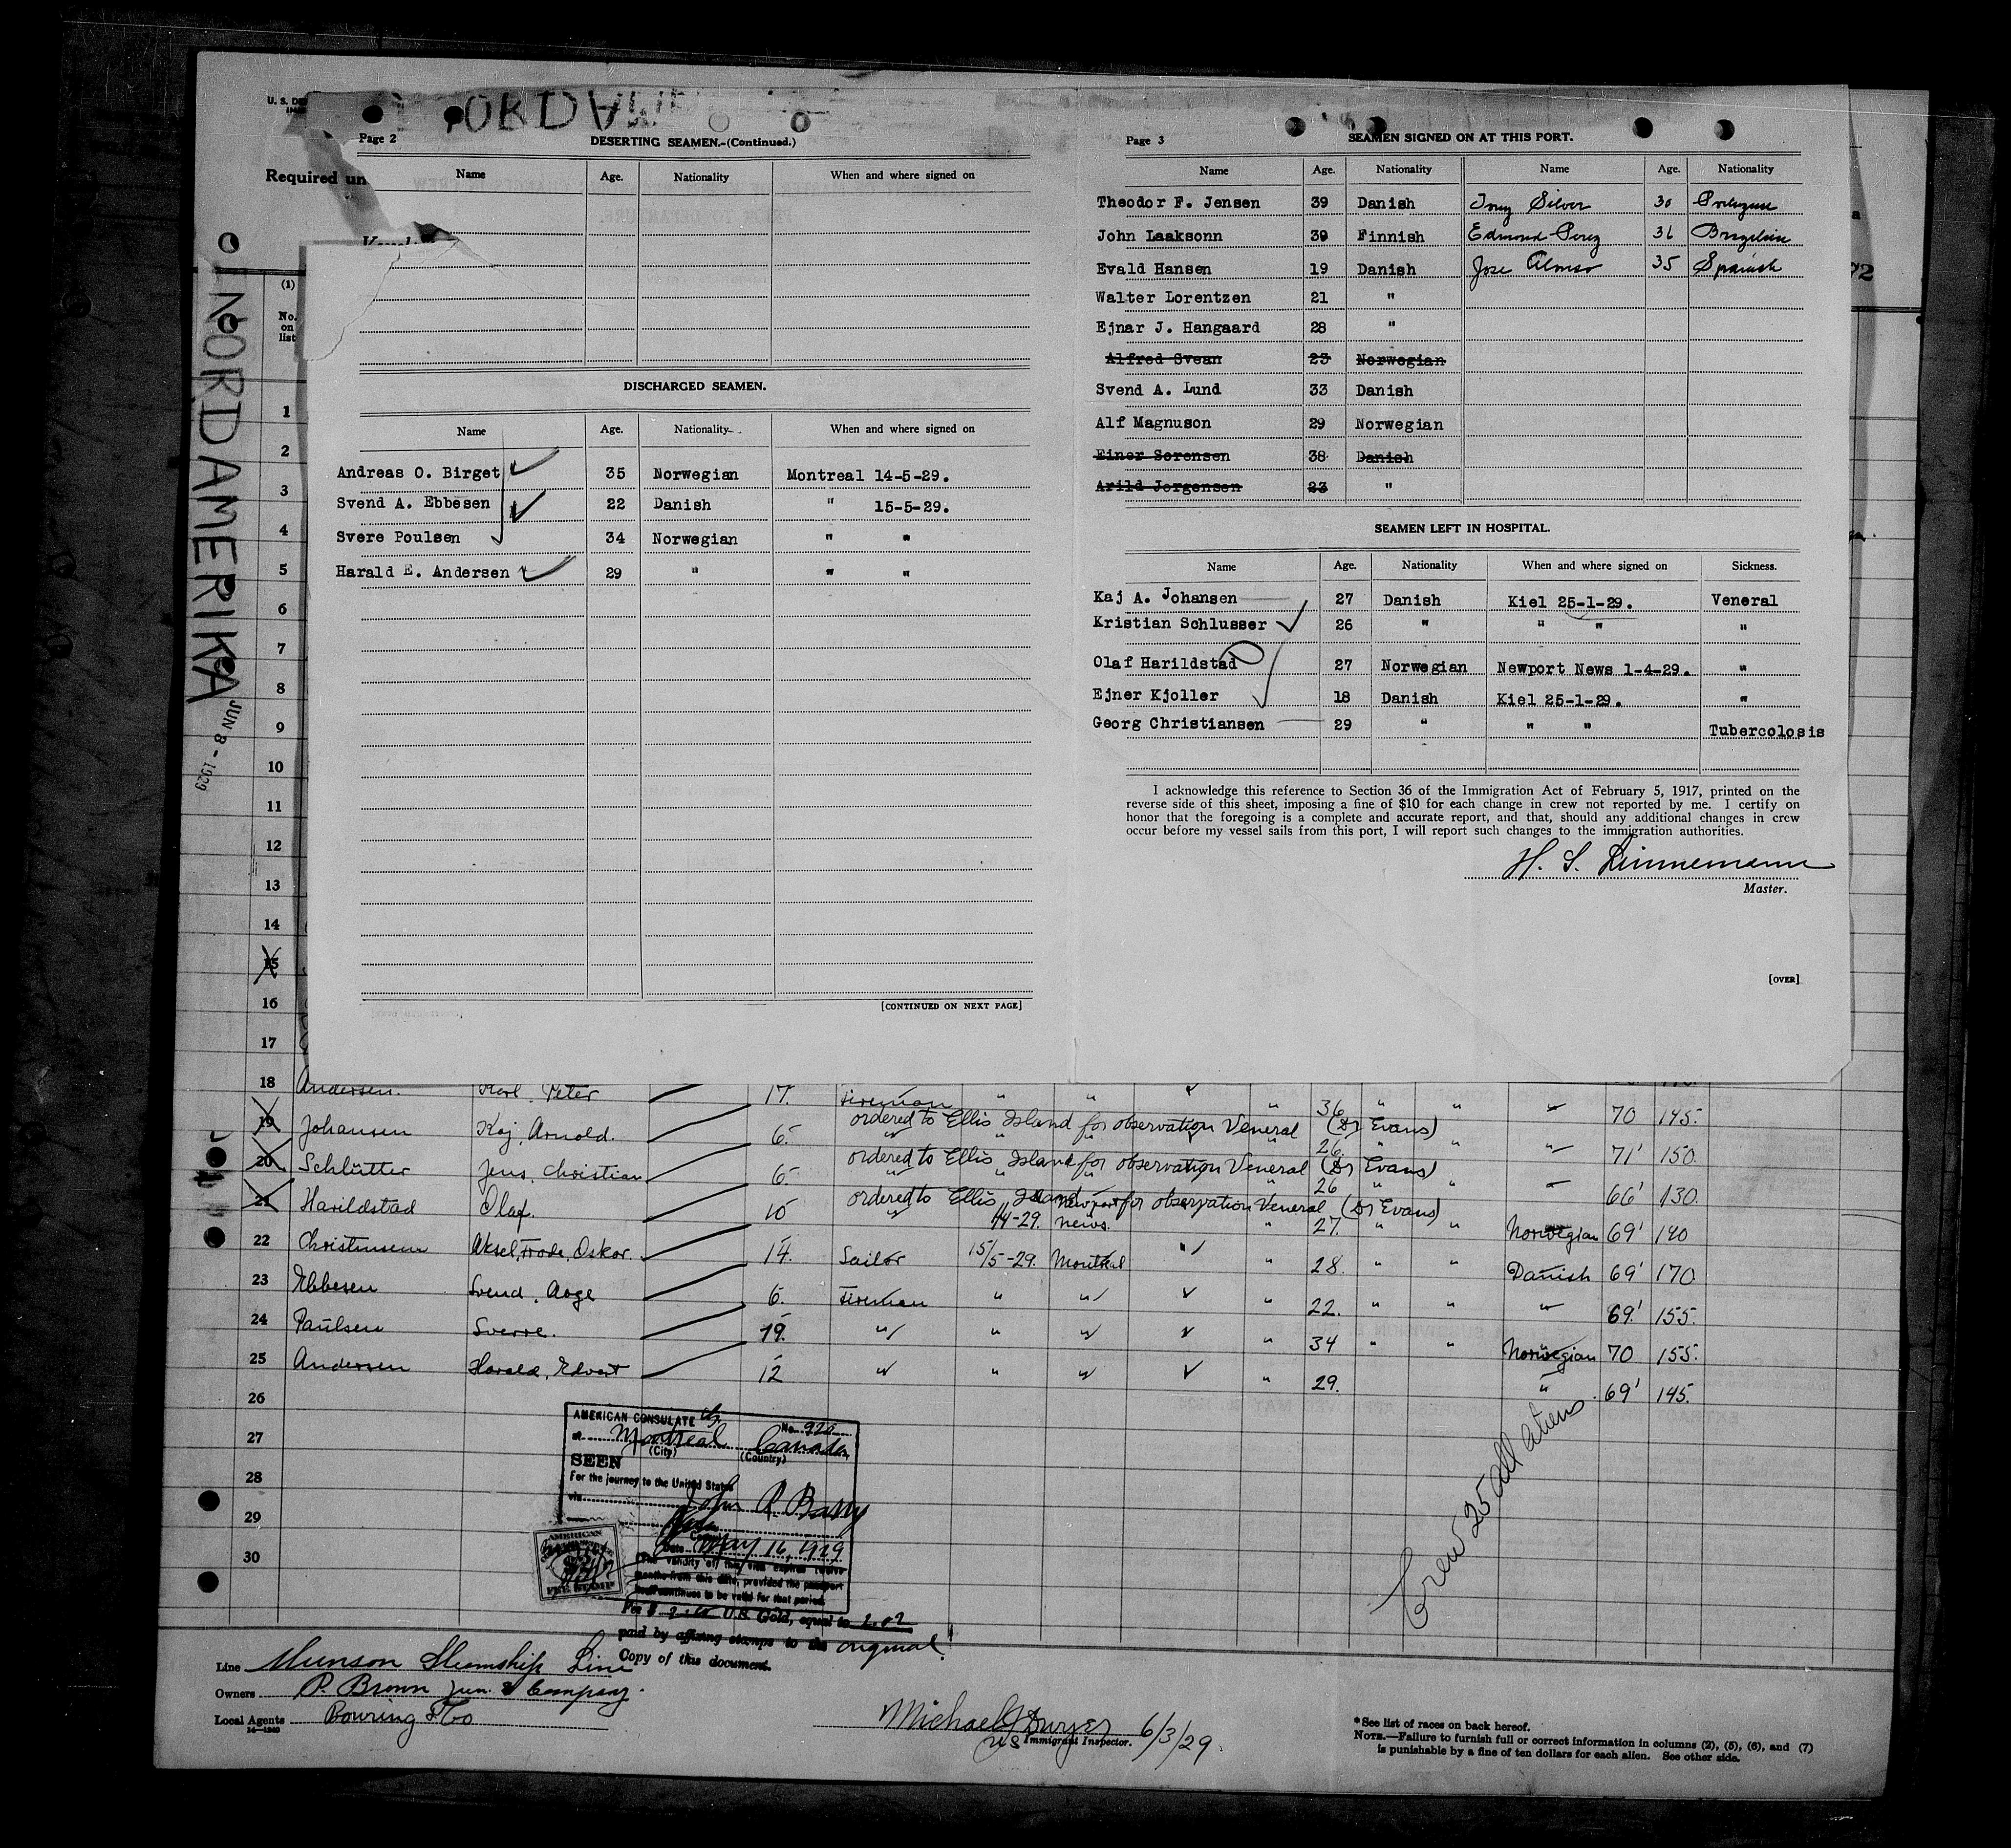 U. S. DE
Required un
NORDAMERIKA
JUN 8 - 1929
(1)
No. on list
Page 2
DESERTING SEAMEN.-(Continued.)
Name Age. Nationality When and where signed on
DISCHARGED SEAMEN.
Name Age. Nationality When and where signed on
Andreas O. Birget 35 Norwegian Montreal 14-5-29.
Svend A. Ebbesen 22 Danish " 15-5-29.
Svere Poulsen 34 Norwegian " "
Harald E. Andersen 29 " " "
[CONTINUED ON NEXT PAGE]
Page 3
SEAMEN SIGNED ON AT THIS PORT.
Name Age. Nationality Name Age. Nationality
Theodor F. Jensen 39 Danish Tony Silver 30
John Laaksonn 39 Finnish Edmond Perez 36
Evald Hansen 19 Danish Jose Alonso 35 Spanish
Walter Lorentzen 21 "
Ejnar J. Hangaard 28 "
Alfred Svean 23 Norwegian
Svend A. Lund 33 Danish
Alf Magnuson 29 Norwegian
Einer Sorensen 38 Danish
Arild Jorgensen 23 "
SEAMEN LEFT IN HOSPITAL.
Name Age. Nationality When and where signed on Sickness.
Kaj A. Johansen 27 Danish Kiel 25-1-29. Veneral
Kristian Schlusser 26 " " " "
Olaf Harildstad 27 Norwegian Newport News 1-4-29. "
Ejner Kjoller 18 Danish Kiel 25-1-29. "
Georg Christiansen 29 " " " Tubercolosis
I acknowledge this reference to Section 36 of the Immigration Act of February 5, 1917, printed on the
reverse side of this sheet, imposing a fine of $10 for each change in crew not reported by me. I certify on
honor that the foregoing is a complete and accurate report, and that, should any additional changes in crew
occur before my vessel sails from this port, I will report such changes to the immigration authorities.
H. S. Linnemann
Master.
[OVER]
1
2
3
4
5
6
7
8
9
10
11
12
13
14
15
16
17
18 Andersen. Karl, Peter 17. Fireman " " " 36 " " " 70 145.
ordered to Ellis Island for observation Veneral (Dr Evans)
19 Johansen Kaj, Arnold. 6. " " " " 26. " " " 71' 150.
ordered to Ellis Island for observation Veneral (Dr Evans)
20 Schlütter Jens, Christian 6. " " " " 26 " " " 66' 130.
ordered to Ellis Island for observation Veneral (Dr Evans)
21 Harildstad Olaf. 10 " 1/4-29. Newport News. " 27. " " Norwegian 69' 140
22 Christensen Aksel, Frode, Oskar. 14. Sailor 15/5-29. Montreal " " 28. " " Danish 69' 170.
23 Ebbesen Svend, Aage 6. Fireman " " " 22. " " " 69' 155.
24 Paulsen Sverre. 19. " " " " 34 " " Norwegian 70 155.
25 Andersen Harald, Edvart 12 " " " " 29. " 69' 145.
26
27
28
29
30
Crew 25 all aliens
AMERICAN CONSULATE No. 920
at Montreal Canada
(City) (Country)
SEEN
For the journey to the United States
via
John R. Barry
Date May 16, 1929
(The validity of this visa expires twelve
months from this date, provided the passport
itself continues to be valid for that period.
U.S. Gold, equal to 2.02
paid by affixing stamps to the original
Copy of this document.
AMERICAN
FEE STAMP
Line Munson Steamship Line
Owners P. Brown Jun. & Company.
Local Agents Bowring & Co
14-1240
Michael J Dwyer 6/3/29.
US Immigrant Inspector.
* See list of races on back hereof.
NOTE.—Failure to furnish full or correct information in columns (2), (5), (6), and (7)
is punishable by a fine of ten dollars for each alien. See other side.